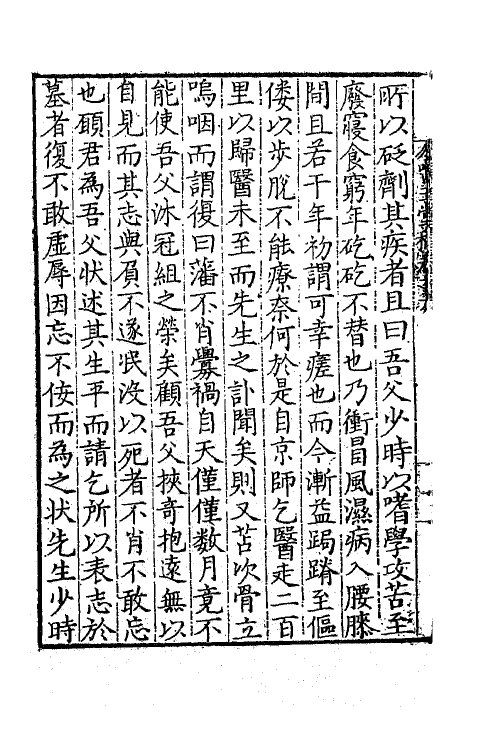 所以砭劑其疾者且曰吾父少時以嗜學攻苦至
廢寢食窮年矻矻不替也乃衝冒風濕病入腰膝
間且若干年初謂可幸瘥也而今漸益跼蹐至傴
僂以步脫不能療奈何於是自京師乞醫走二百
里以歸醫未至而先生之訃聞矣則又苫次骨立
嗚咽而謂復曰藩不肖釁禍自天僅僅數月竟不
能使吾父沐冠組之榮矣顧吾父挾奇抱遠無以
自見而其志與頁不遂泯沒以死者不肖不敢忘
也願君為吾父狀述其生平而請乞所以表志於
墓者復不敢虛辱因忘不佞而為之状先生少時